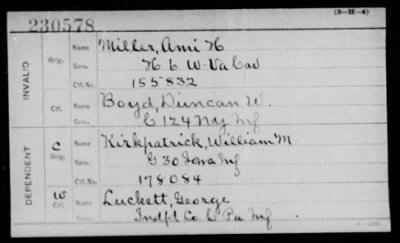 (3-H-4)
230578
INVALID
Orig. Name Miller, Ami H
Serv. H 6 W. Va Cav
Ctf. No. 155832
Ctf. Name Boyd, Duncan W.
Serv. E 124 NY Inf
DEPENDENT
C Orig. Name Kirkpatrick, William M.
Serv. G 30 Iowa Inf
Ctf. No. 178084
W Ctf. Name Luckett, George
Serv. Indpt Co C Pa Inf